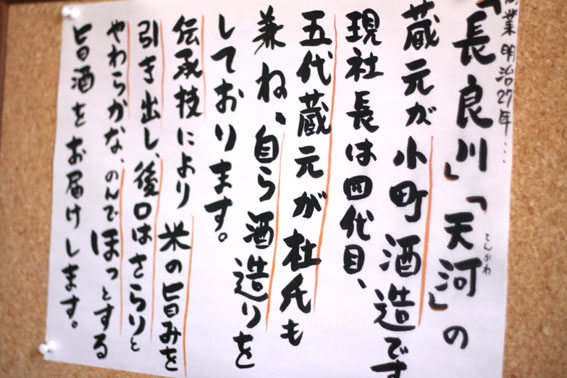 創業明治27年…
「長良川」「天河」の
てんがわ
蔵元が小町酒造です
現社長は四代目、
五代蔵元が杜氏も
兼ね、自ら酒造りを
しております。
伝承技により米の旨みを
引き出し、後口はさらりと
やわらかな、のんでほっとする
旨酒をお届けします。